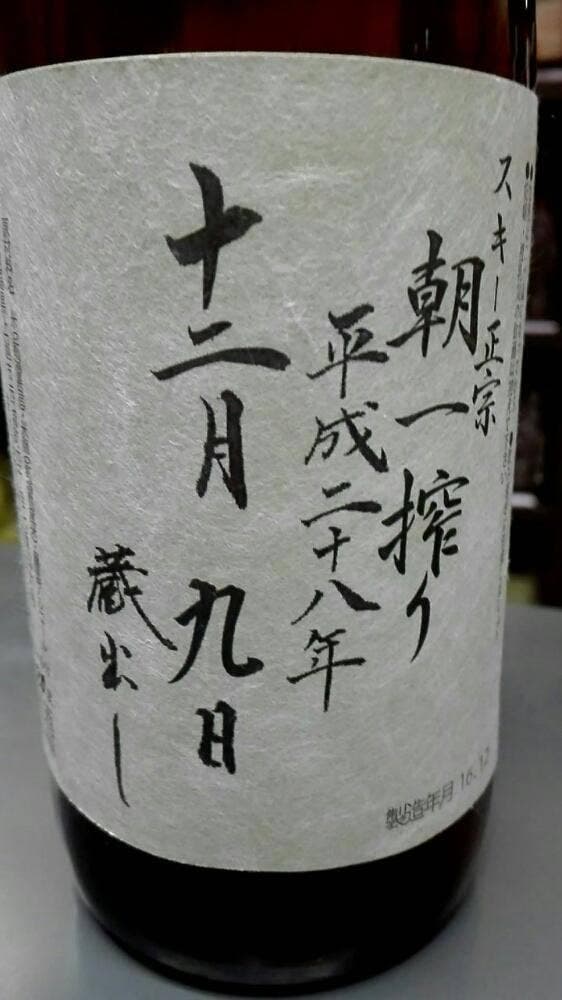 スキー正宗
朝一搾り
平成二十八年
十二月九日
蔵出し
製造年月 16.12